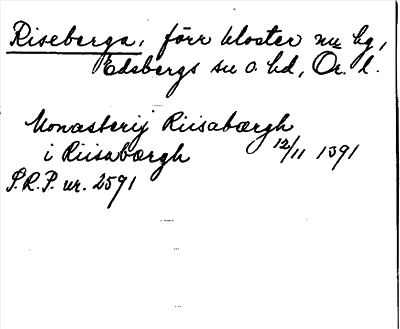 Riseberga, förr kloster nu hg,
Edsbergs sn o. hd, Ör. l.
Monasterij Riisabærgh
i Riisabærgh 12/11 1391
S.R.P. nr. 2591